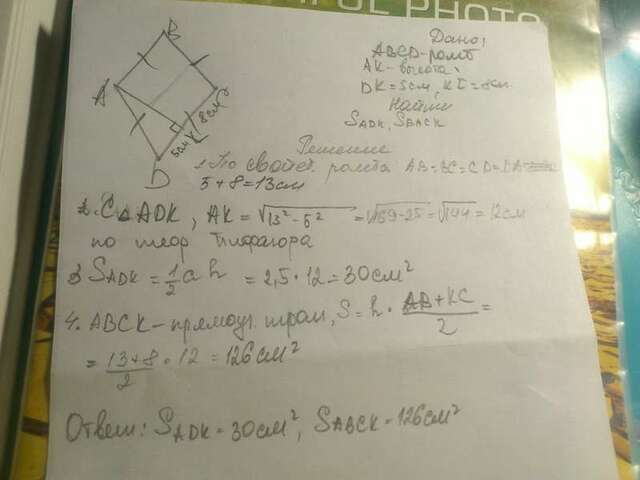 FUL PHOTO
B
A
D
5см K 8см
Дано:
ABCD-ромб
AK-высота
DK=5см, KC=8см
Найти
SADK, SBACK
Решение
1. По свойст. ромба AB=BC=CD=DA
5+8=13см
2. С△ADK, AK=√13²-5² =√169-25=√144=12см
по теор Пифагора
3 SADK=1/2 a h =2,5·12=30см²
4. ABCK-прямоуг. трап, S=h·(AB+KC)/2=
=(13+8)/2·12=126см²
Ответ: SADK=30см², SABCK=126см²